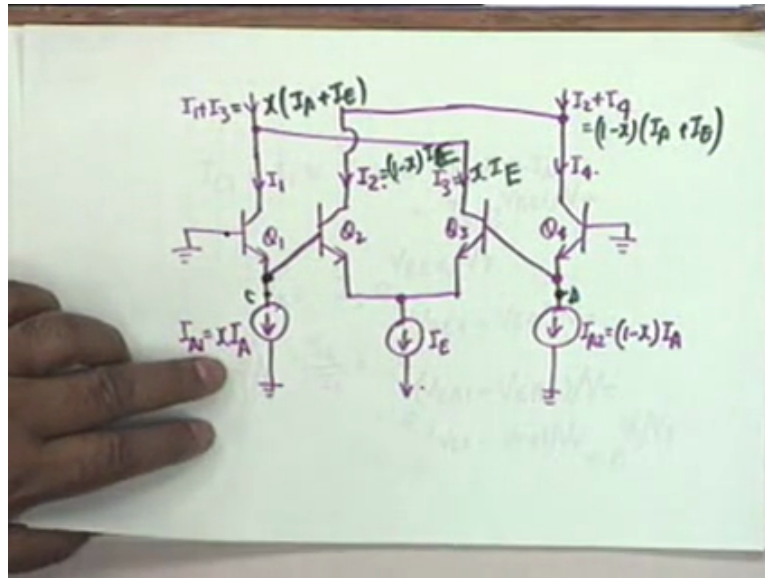 I₁+I₃= x(I_A+I_E)
I₂+I₄
=(1-x)(I_A+I_E)
I₁
I₂=(1-x)I_E
I₃=x.I_E
I₄.
Q₁
Q₂
Q₃
Q₄
C
D
I_A1=xI_A
I_E
I_A2=(1-x)I_A